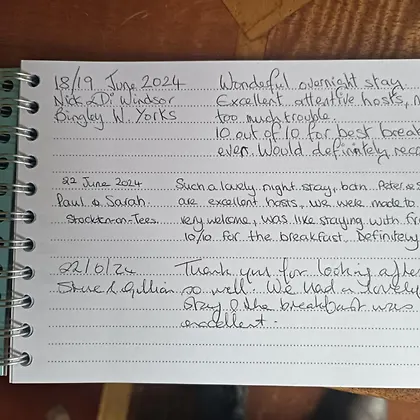 18/19 June 2024 Wonderful overnight stay
Nick & Di Windsor Excellent attentive hosts,
Bingley W. Yorks too much trouble.
10 out of 10 for best break
ever. Would definitely reco
22 June 2024 Such a lovely night stay, both Peter &
Paul & Sarah are excellent hosts, we were made to
Stockton-on-Tees very welcome, was like staying with fr
10/10 for the breakfast. Definitely
Thank you for looking after
Steve & Gillian so well. We had a lovely
stay & the breakfast was
excellent.